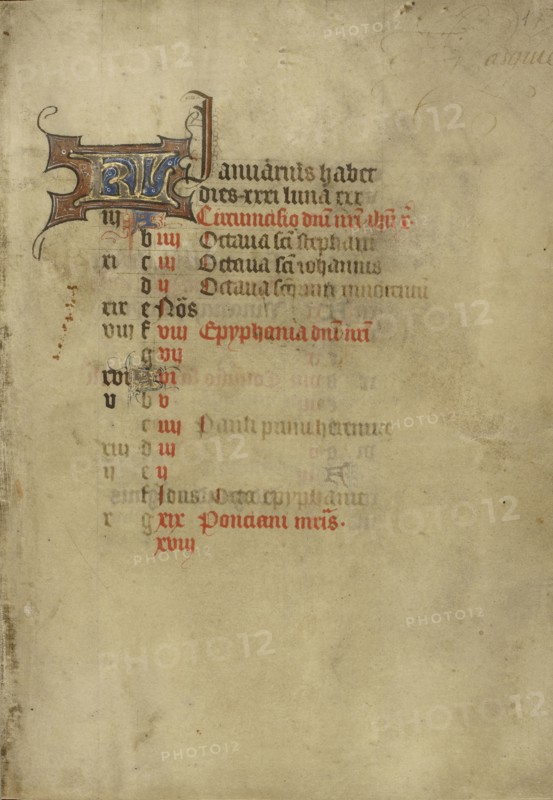 KL Januarius habet
dies xxxi luna xxx
iij A Circumcisio dnī nrī ihū x̄
b iiij Octava scī stephani
xi c iij Octava scī iohannis
d ij Octava
xix e Nōs
viij f viij Epyphania dnī nrī
g vij
xvi A vi
v b v
c iiij Pauli primi heremite
xiij d iij
ij e ij
f Idus Octa epyphanie
x g xix Ponciani mr̄is.
xviij
PHOTO12